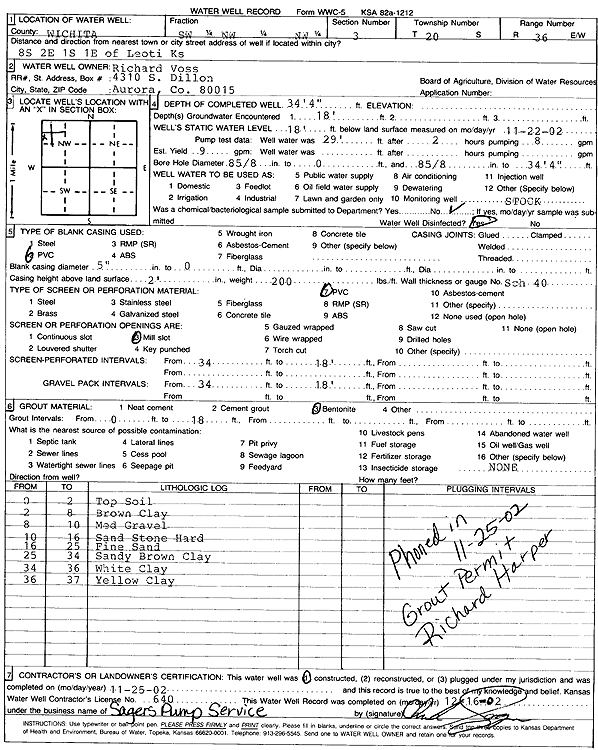 WATER WELL RECORD Form WWC-5 KSA 82a-1212
1 LOCATION OF WATER WELL: Fraction Section Number Township Number Range Number
County: WICHITA SW ¼ NW ¼ NW ¼ 3 T 20 S R 36 E/W
Distance and direction from nearest town or city street address of well if located within city?
8S 2E 1S 1E of Leoti Ks
2 WATER WELL OWNER: Richard Voss
RR#, St. Address, Box # : 4310 S. Dillon Board of Agriculture, Division of Water Resources
City, State, ZIP Code : Aurora, Co. 80015 Application Number:
3 LOCATE WELL'S LOCATION WITH AN "X" IN SECTION BOX:
N
NW NE
W E
SW SE
S
1 Mile
4 DEPTH OF COMPLETED WELL 34'4" ft. ELEVATION:
Depth(s) Groundwater Encountered 1. 18' ft. 2. ft. 3. ft.
WELL'S STATIC WATER LEVEL 18' ft. below land surface measured on mo/day/yr 11-22-02
Pump test data: Well water was 29' ft. after 2 hours pumping 8 gpm
Est. Yield 9 gpm: Well water was ft. after hours pumping gpm
Bore Hole Diameter 85/8 in. to 0 ft., and 85/8 in. to 34'4" ft.
WELL WATER TO BE USED AS: 5 Public water supply 8 Air conditioning 11 Injection well
1 Domestic 3 Feedlot 6 Oil field water supply 9 Dewatering 12 Other (Specify below)
2 Irrigation 4 Industrial 7 Lawn and garden only 10 Monitoring well STOCK
Was a chemical/bacteriological sample submitted to Department? Yes No ✓ ; If yes, mo/day/yr sample was sub-
mitted Water Well Disinfected? Yes No
5 TYPE OF BLANK CASING USED: 5 Wrought iron 8 Concrete tile CASING JOINTS: Glued Clamped
1 Steel 3 RMP (SR) 6 Asbestos-Cement 9 Other (specify below) Welded
2 PVC 4 ABS 7 Fiberglass Threaded
Blank casing diameter 5" in. to 0 ft., Dia in. to ft., Dia in. to ft.
Casing height above land surface 2' in., weight 200 lbs./ft. Wall thickness or gauge No. Sch 40
TYPE OF SCREEN OR PERFORATION MATERIAL: 7 PVC 10 Asbestos-cement
1 Steel 3 Stainless steel 5 Fiberglass 8 RMP (SR) 11 Other (specify)
2 Brass 4 Galvanized steel 6 Concrete tile 9 ABS 12 None used (open hole)
SCREEN OR PERFORATION OPENINGS ARE: 5 Gauzed wrapped 8 Saw cut 11 None (open hole)
1 Continuous slot 3 Mill slot 6 Wire wrapped 9 Drilled holes
2 Louvered shutter 4 Key punched 7 Torch cut 10 Other (specify)
SCREEN-PERFORATED INTERVALS: From 34 ft. to 18' ft., From ft. to ft.
From ft. to ft., From ft. to ft.
GRAVEL PACK INTERVALS: From 34 ft. to 18' ft., From ft. to ft.
From ft. to ft., From ft. to ft.
6 GROUT MATERIAL: 1 Neat cement 2 Cement grout 3 Bentonite 4 Other
Grout Intervals: From 0 ft. to 18 ft., From ft. to ft., From ft. to ft.
What is the nearest source of possible contamination: 10 Livestock pens 14 Abandoned water well
1 Septic tank 4 Lateral lines 7 Pit privy 11 Fuel storage 15 Oil well/Gas well
2 Sewer lines 5 Cess pool 8 Sewage lagoon 12 Fertilizer storage 16 Other (specify below)
3 Watertight sewer lines 6 Seepage pit 9 Feedyard 13 Insecticide storage NONE
Direction from well? How many feet?
FROM TO LITHOLOGIC LOG FROM TO PLUGGING INTERVALS
0 2 Top Soil
2 8 Brown Clay
8 10 Med Gravel
10 16 Sand Stone Hard
16 25 Fine Sand
25 34 Sandy Brown Clay
34 36 White Clay
36 37 Yellow Clay
Phoned in
11-25-02
Grout Permit
Richard Harper
7 CONTRACTOR'S OR LANDOWNER'S CERTIFICATION: This water well was (1) constructed, (2) reconstructed, or (3) plugged under my jurisdiction and was
completed on (mo/day/year) 11-25-02 and this record is true to the best of my knowledge and belief. Kansas
Water Well Contractor's License No. 640 This Water Well Record was completed on (mo/day/yr) 12-16-02
under the business name of Sagers Pump Service by (signature)
INSTRUCTIONS: Use typewriter or ball point pen. PLEASE PRESS FIRMLY and PRINT clearly. Please fill in blanks, underline or circle the correct answers. Send top three copies to Kansas Department
of Health and Environment, Bureau of Water, Topeka, Kansas 66620-0001. Telephone: 913-296-5545. Send one to WATER WELL OWNER and retain one for your records.